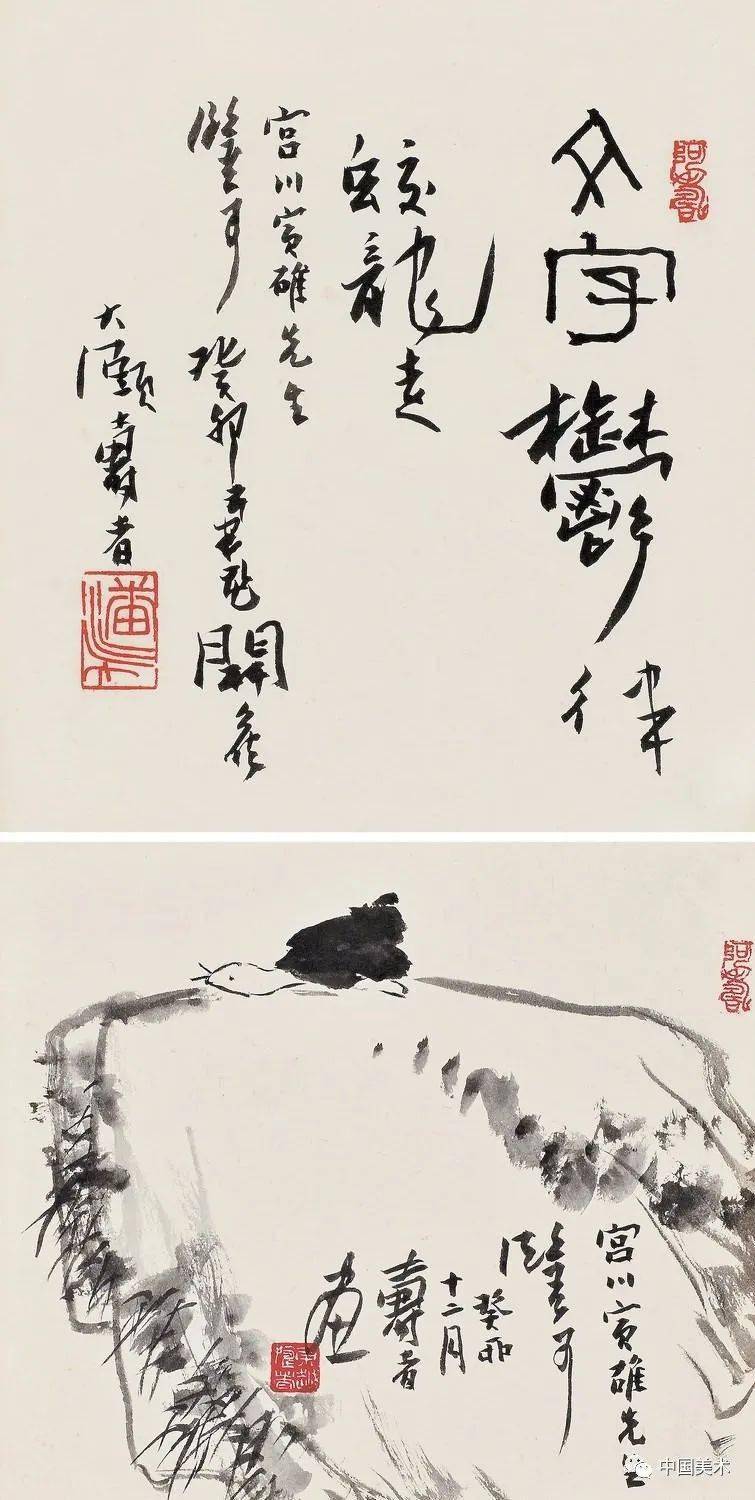 阿壽
文字鬱律
蛟龍走
宮川寅雄先生
鑒 癸卯 開
大頤壽者
阿壽
宮川寅雄先生
鑒
癸卯
十二月
壽者
畫
中国美术